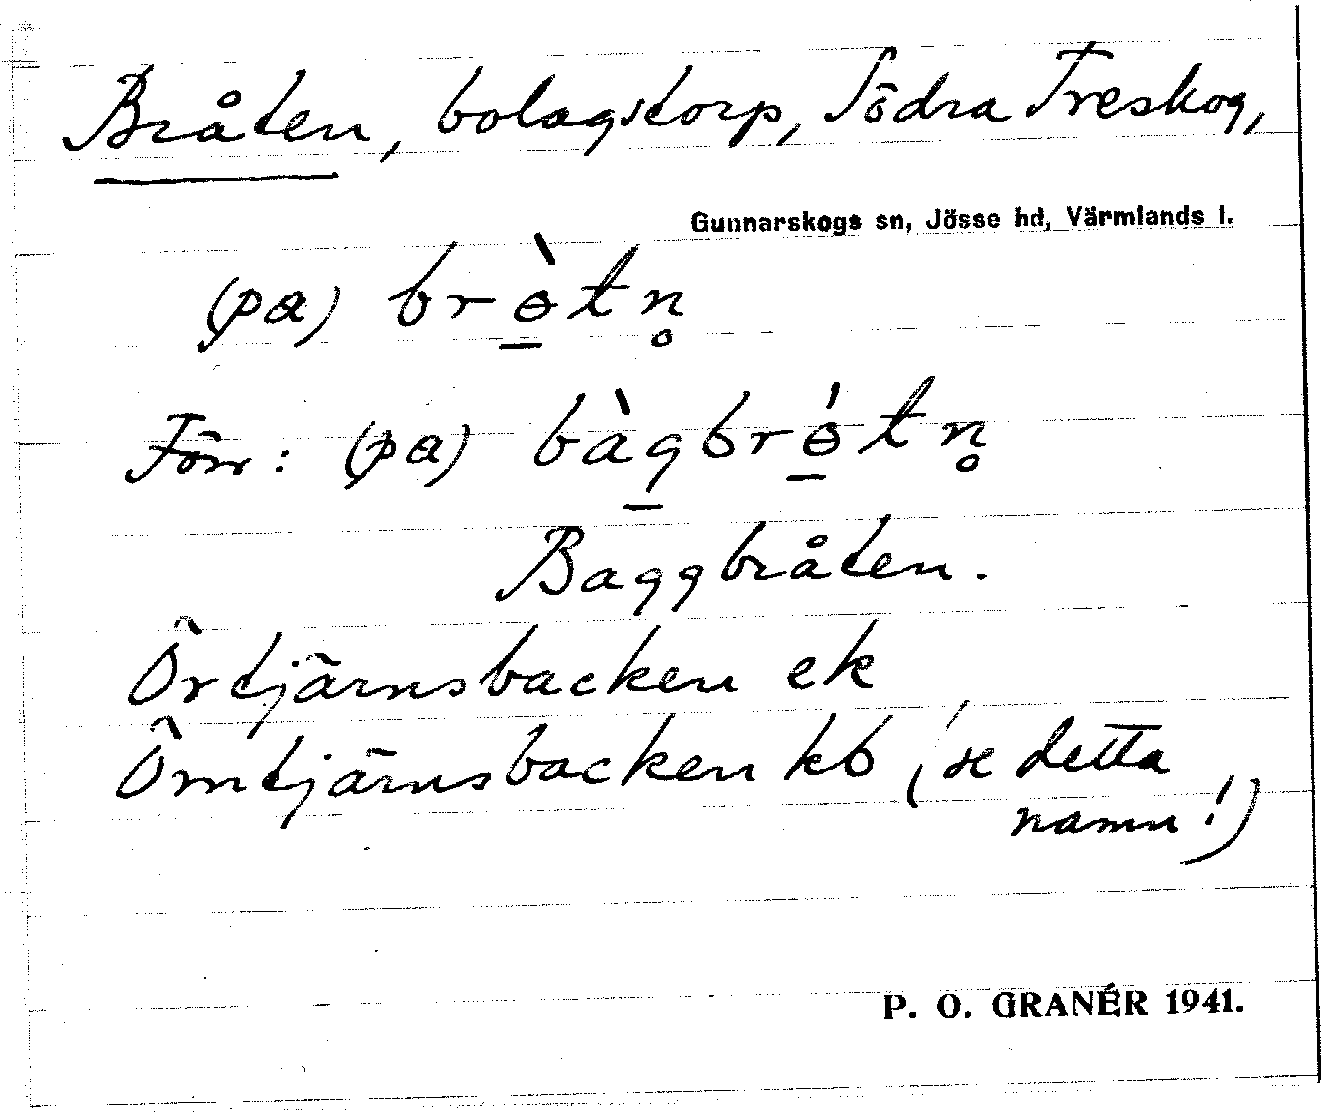 Bråten, bolagstorp, Södra Treskog,
Gunnarskogs sn, Jösse hd, Värmlands l.
(pa) brɵ̱̀tn̥
Förr: (pa) bàg̱brɵ̱́tn̥
Baggbråten.
Örtjärnsbacken ek
Örntjärnsbacken kb (se detta
namn!)
P. O. GRANÉR 1941.